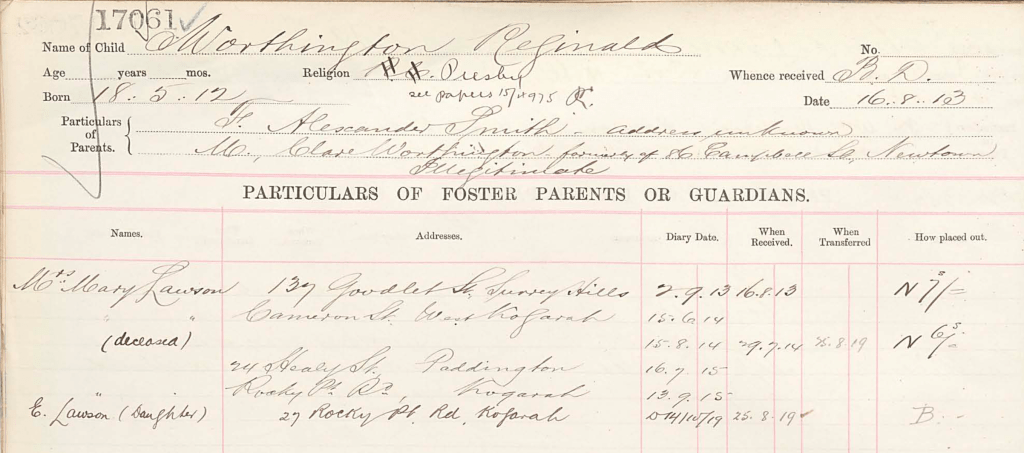 17061 ✓
Name of Child Worthington Reginald No.
Age years mos. Religion Presby Whence received B. D.
see papers 15/
Born 18.5.12 Date 16.8.13
Particulars of Parents. F. Alexander Smith - address unknown
M., Clare Worthington formerly of 86 Campbell St, Newtown
Illegitimate
PARTICULARS OF FOSTER PARENTS OR GUARDIANS.
Names. Addresses. Diary Date. When Received. When Transferred How placed out.
Mrs Mary Lawson 137 Goodlet St. Surrey Hills 2.9.13 16.8.13 N 7/-
" " Cameron St. West Kogarah 15.6.14
(deceased) 15.8.14 29.7.14 25.8.19 N 6/-
24 Healy St. Paddington 16.7.15
" Rocky Pt. Rd, Kogarah 13.9.15
E. Lawson (Daughter) 27 Rocky Pt. Rd, Kogarah D 14/10/19 25.8.19 B. -